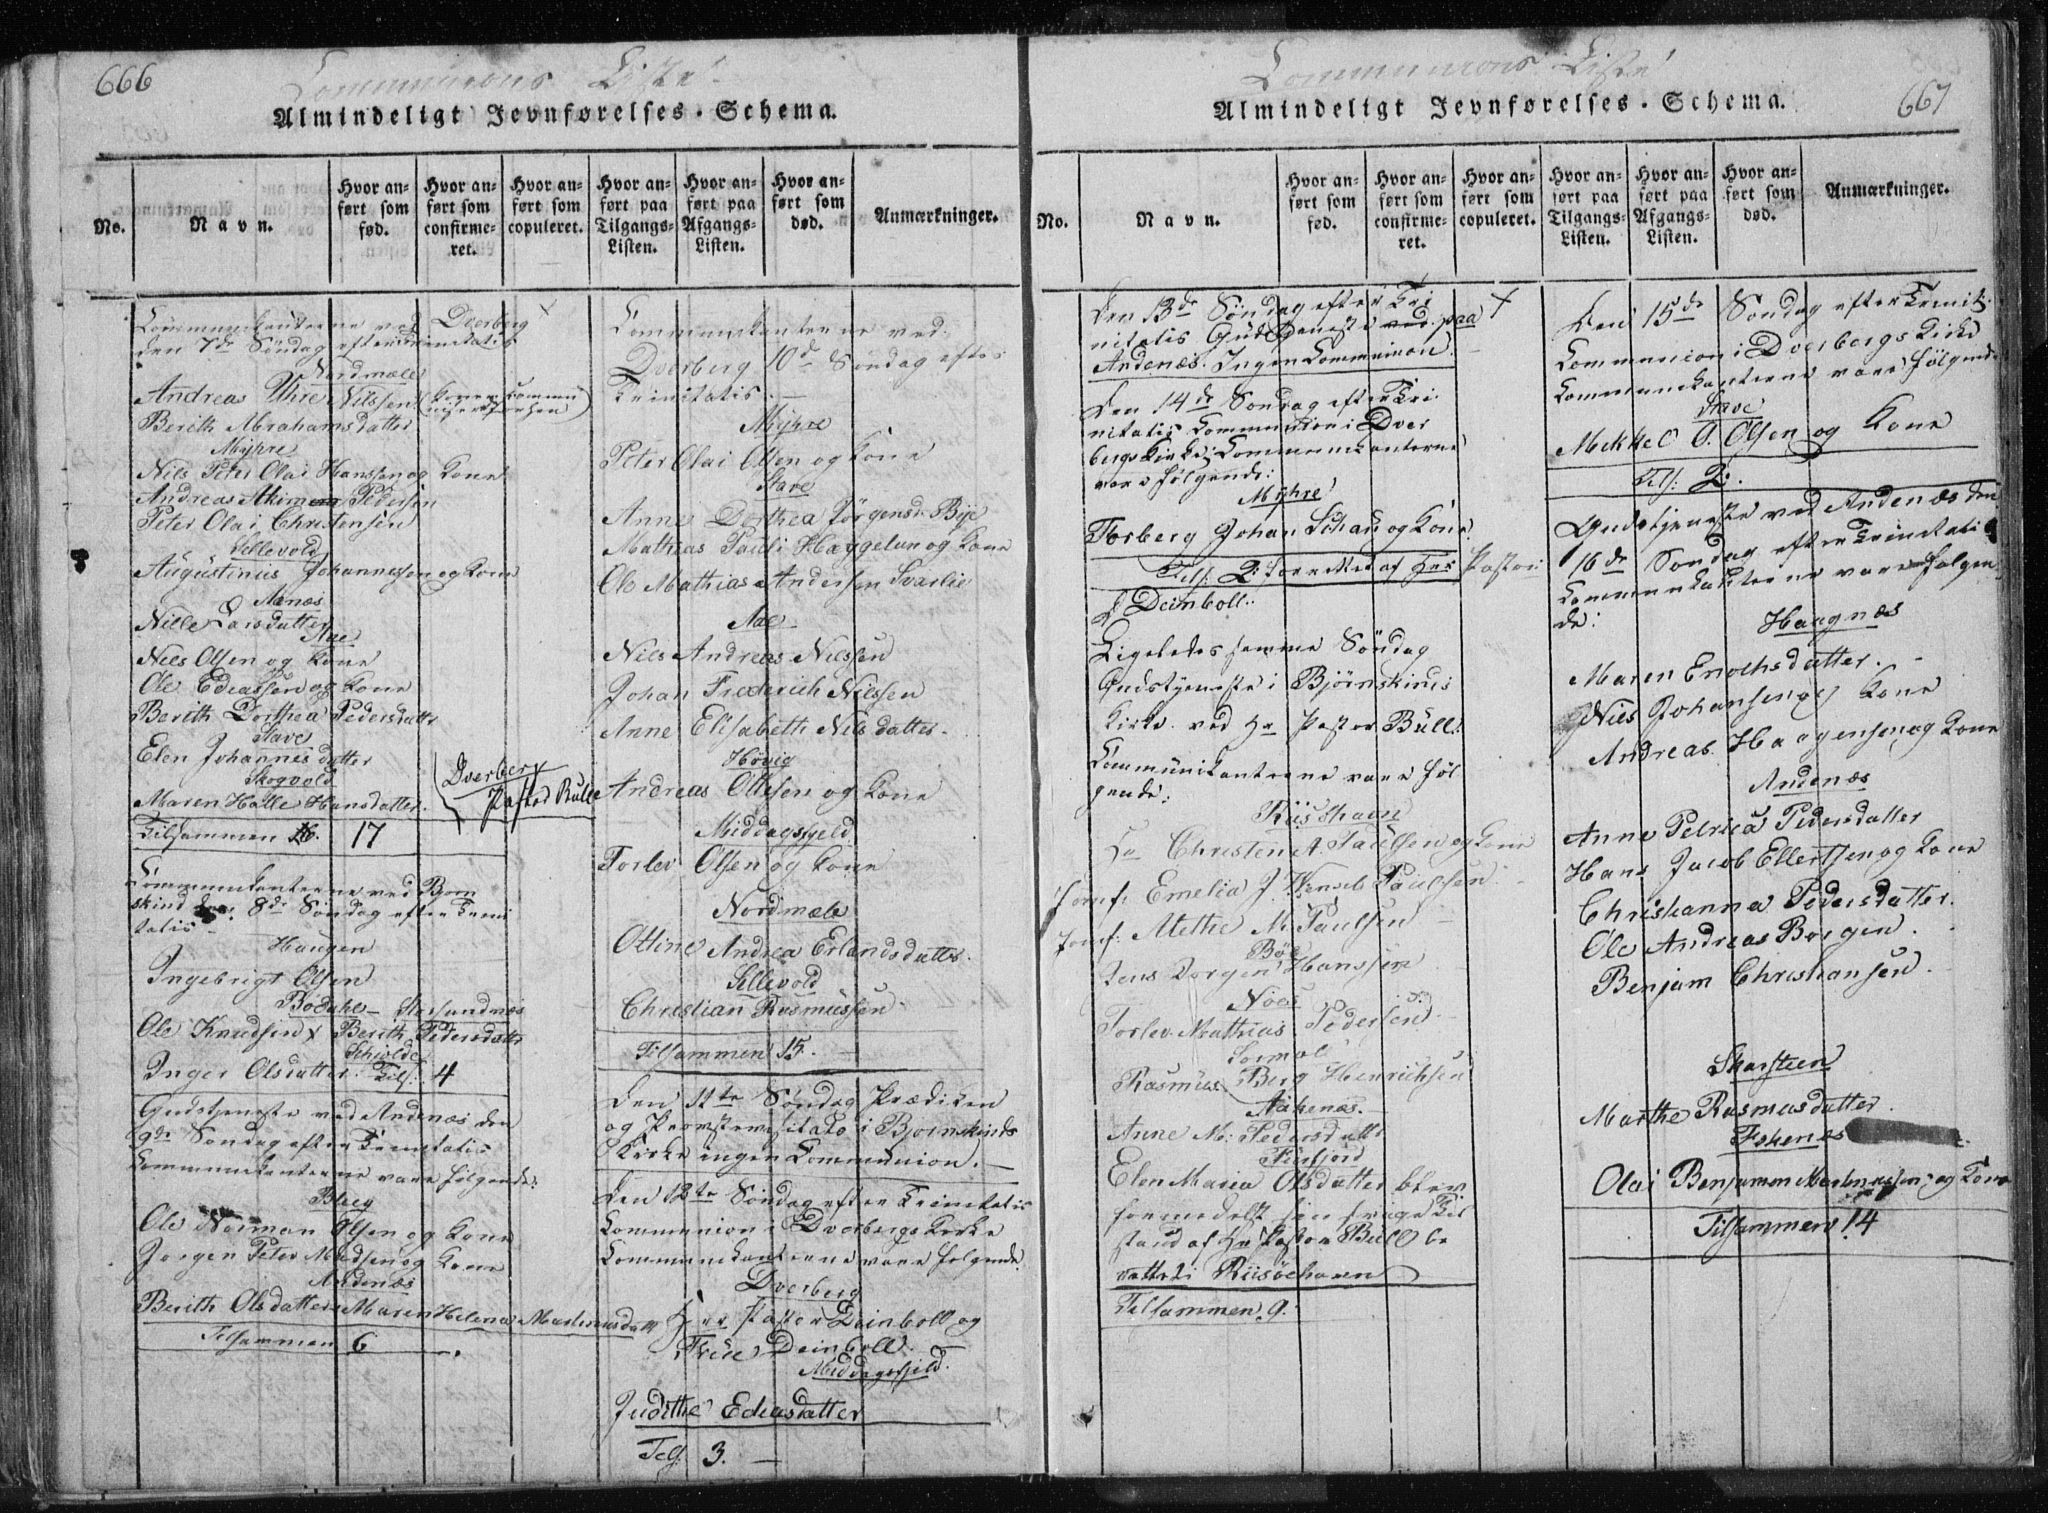 666
Communions Liste
Almindeligt Jevnførelses-Schema.
No.
Navn.
Hvor anført som fød.
Hvor anført som confirmeret.
Hvor anført som copuleret.
Hvor anført paa Tilgangs-Listen.
Hvor anført paa Afgangs-Listen.
Hvor anført som død.
Anmærkninger.
Communikanterne ved Dverberg
den 7de Søndag efter Trinitatis
Nordmæle
Andrea Uhre Nilssen
Berith Abrahamsdatter
Myhre
Nils Peter Olai Hanssen og Kone
Andreas Akim Pedersen
Peter Olai Christensen
Sellevold
Augustinus Johannessen og Kone
Aanæs
Nille Larsdatter
Aae
Niels Olsen og Kone
Ole Ediassen og Kone
Berith Dorthea Pedersdattr
Stave
Elen Johannesdatter
Skogvold
Maren Halle Hansdatter.
Dverberg
Pastor Bull
Tilsammen 17
Communikanterne ved Bjørn
skind den 8de Søndag efter Trini
tatis
Haugen
Ingebrigt Olsen
Ole Knudsen x Berith Pedersdattr
Inger Olsdatter. Tils: 4
Gudstjeneste ved Andenæs den
9de Søndag efter Trinitatis
Communikanterne vare følgende:
Bleeg
Ole Norman Olsen og Kone
Jørgen Peter Madsen og Kone
Andenæs
Berith Olsdatter Maren Helena Martinusdatt
Tilsammen 6.
Communikanterne ved
Dverberg 10de Søndag efter
Trinitatis.
Myhre
Peter Olai Olsen og Kone
Stave
Anne Dorthea Jørgensd: Bye
Mathias Pauli Haggelun og Kone
Ole Mathias Andersen Svarlie
Aae
Niels Andreas Nilssen
Johan Frederich Nilssen
Anne Elisabeth Nilsdatter.
Høvig
Andreas Ottesen og Kone
Middagsfjeld
Torlev Olsen og Kone
Nordmæle
Ottine Andrea Erlandsdatter.
Sellevold
Christian Rasmussen
Tilsammen 15.
Den 11te Søndag Prædiken
og Provstevisitats i Bjørnskinds
Kirke ingen Communion.
Den 12te Søndag efter Trinitatis
Communion i Dverbergs Kirke
Communikanterne vare følgende:
Dverberg
Herr Pastor Deinboll og
Frue Deinboll.
Middagsfjeld.
Judithe Ediasdatter
Tils 3.
667
Communions Liste
Almindeligt Jevnførelses-Schema.
No.
Navn.
Hvor anført som fød.
Hvor anført som confirmeret.
Hvor anført som copuleret.
Hvor anført paa Tilgangs-Listen.
Hvor anført paa Afgangs-Listen.
Hvor anført som død.
Anmærkninger.
Den 13de Søndag efter Tri
nitatis Gudstjeneste ved paa
Andenæs. Ingen Communion.
Den 14de Søndag efter Tri
nitatis Communion i Dver
bergs Kirke; Communikanterne
vare følgende:
Myhre
Torberg Johan Schau og Kone.
Tils: 2: forrettet af Herr Pastor
Deinboll.
Ligeledes samme Søndag
Gudstjeneste i Bjørnskinds
Kirke ved Hr Pastor Bull.
Communikanterne vare føl
gende:
Riisøhavn
Christen A. Paulsen og Kone
Jomf: Emelia J. Wensel Paulsen
Jomf: Methe M. Paulsen
Bøe
Jens Jørgen Hanssen
Nøss
Torlev Mathias Pedersen
Sormol
Rasmus Berg Henrichsen
Aakenæs.
Anne M: Pedersdattr
Finfjord
Elen Maria Olsdatter blev
formedelst sin svage Til
stand af Hr Pastor Bull be
rettet i Riisøehavn
Tilsammen 9.
Den 15de Søndag efter Trinit.
Communion i Dverbergs Kirke
Communikanterne vare følgende
Stave
Mekkel O. Olsen og Kone
Tils: 2.
Gudstjeneste ved Andenæs den
16de Søndag efter Trinitatis
Communikanterne vare følgen
de:
Haugnæs
Maren Enochsdatter.
Niels Johansen og Kone
Andreas Haagensen og Kone
Andenæs
Anne Petrica Pedersdatter
Hans Jacob Ellertsen og Kone
Christianna Pedersdatter.
Ole Andreas Borgen.
Benjam Christiansen.
Skarsteen
Marthe Rasmusdatter.
Fiskenes
Olai Benjamen Martinussen og Kone
Tilsammen 14